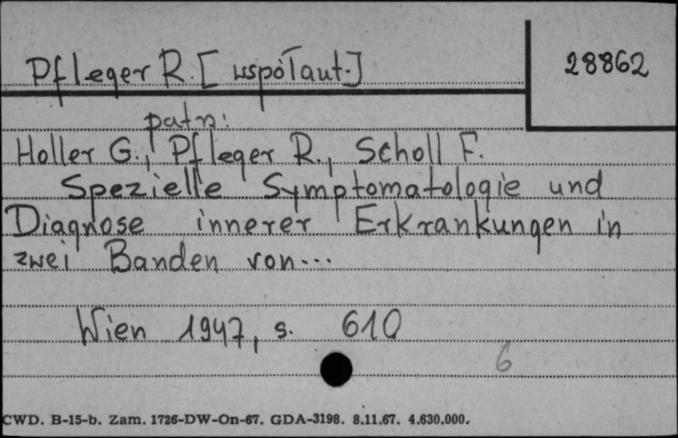 Pfleger R. [współaut.]
28862
patrz:
Holler G., Pfleger R., Scholl F.
Spezielle Symptomatologie und
Diagnose innerer Erkrankungen in
zwei Banden von...
Wien 1947, s. 610
6
CWD. B-15-b. Zam. 1726-DW-On-67. GDA-3198. 8.11.67. 4.630.000.